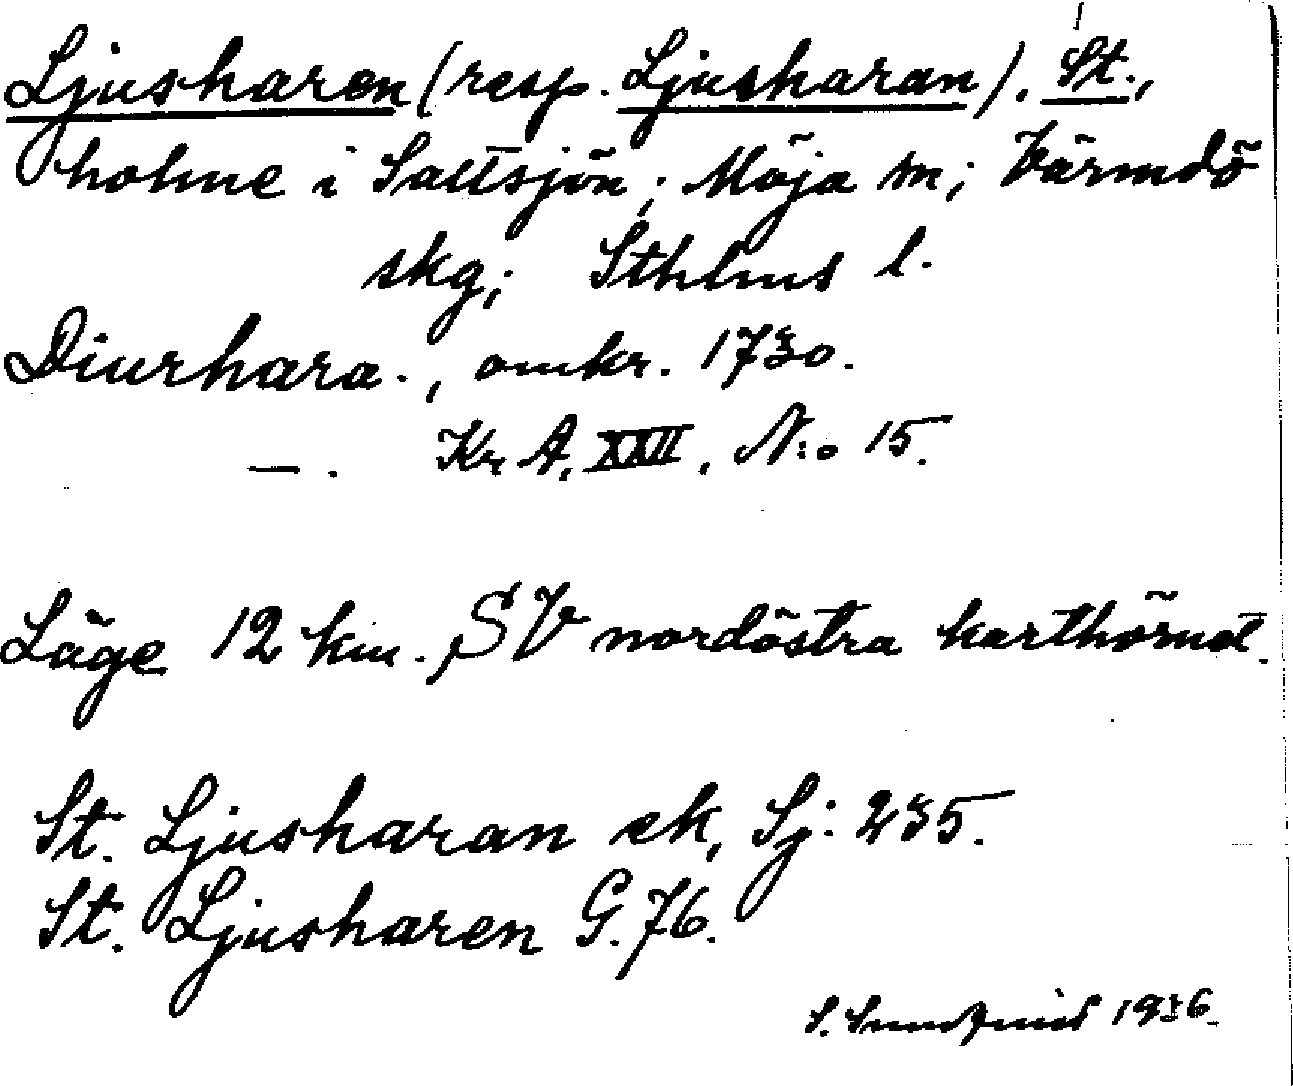 Ljusharen (resp. Ljusharan). St.,
holme i Saltsjön; Möja sn; Värmdö
skg; Sthlms l.
Diurhara., omkr. 1730.
—. Kr. A. XXII, N:o 15.
Läge 12 km. SV nordöstra karthörnet.
St. Ljusharan ek, Sj: 235.
St. Ljusharen G. 76.
S. 1936.